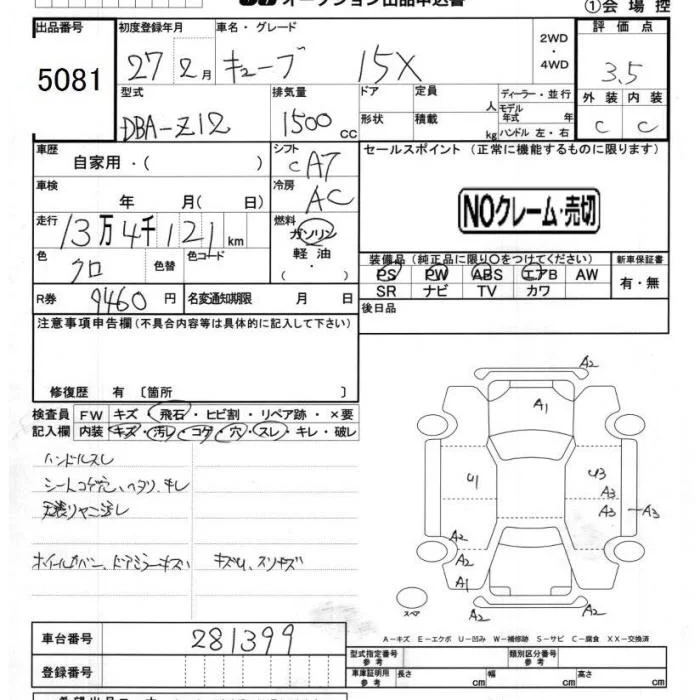 オークション出品申込書
①会場控
出品番号
5081
初度登録年月
27 2月
車名・グレード
キューブ 15X
2WD・4WD
評価点
3.5
型式
DBA-Z12
排気量
1500 cc
ドア
定員
人
形状
積載
kg
ディーラー・並行
モデル年式 年
ハンドル 左・右
外装 内装
C C
車歴
自家用・( )
シフト
CA7
セールスポイント(正常に機能するものに限ります)
車検
年 月( 日)
冷房
AC
NOクレーム・売切
走行
13万4千121km
燃料
ガソリン
軽油
( ・ )
色
クロ
色替
色コード
装備品(純正品に限り○をつけてください)
PS PW ABS エアB AW
SR ナビ TV カワ
新車保証書
有・無
R券 9460円
名変通知期限 月 日
後日品
注意事項申告欄(不具合内容等は具体的に記入して下さい)
修復歴 有〔箇所 〕
検査員記入欄
FW キズ・飛石・ヒビ割・リペア跡・×要
内装 キズ・汚レ・コゲ・穴・スレ・キレ・破レ
ハンドルスレ
シートコゲ穴、ヘタリ、キレ
天張りヤニ汚レ
ホイールカバー、ドアミラーキズ
キズU、スリキズ
A2
A1
U1
U3
A3
A3
A3
A2
A2
A1
A2
A2
スペア
A-キズ E-エクボ U-凹み W-補修跡 S-サビ C-腐食 XX-交換済
車台番号
281399
登録番号
型式指定番号 参考
類別区分番号 参考
車庫証明用 参考
長さ cm
幅 cm
高さ cm